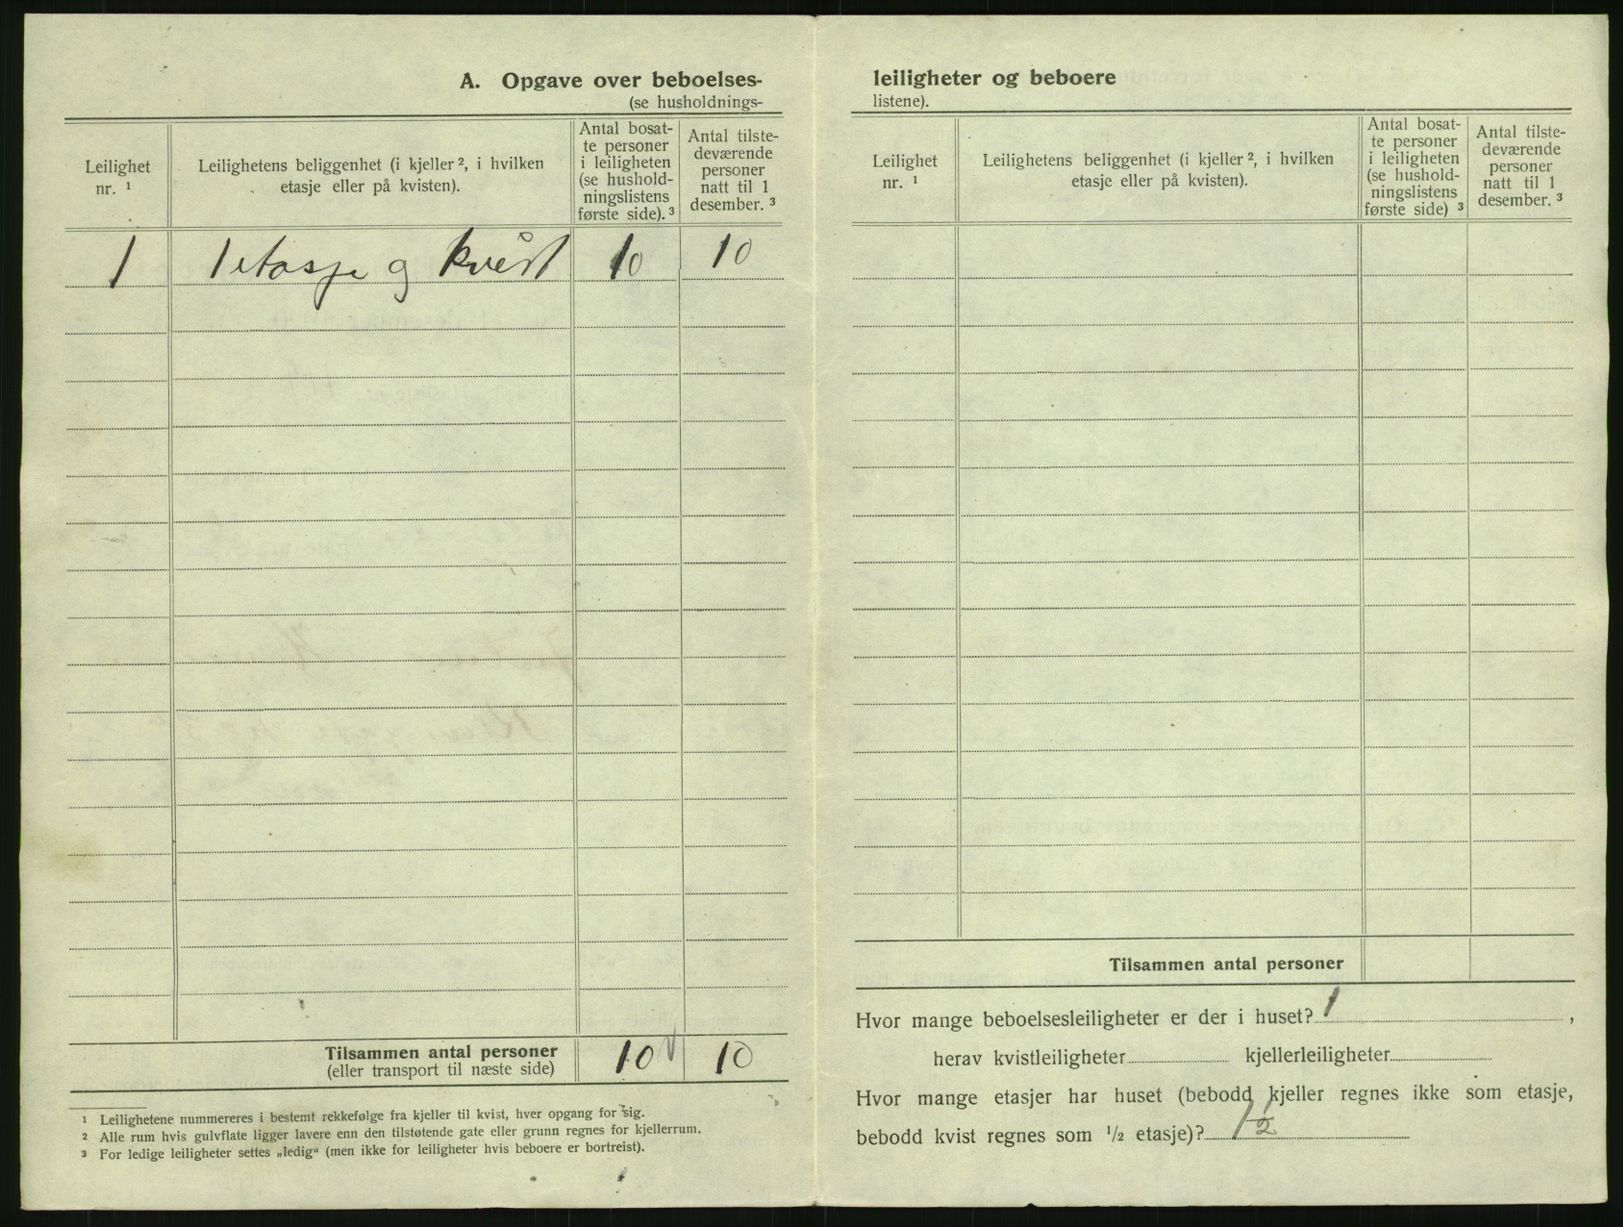 A. Opgave over beboelses-
(se husholdnings-
Leilighet nr. ¹
Leilighetens beliggenhet (i kjeller ², i hvilken etasje eller på kvisten).
Antal bosat-
te personer
i leiligheten
(se hushold-
ningslistens
første side). ³
Antal tilste-
deværende
personer
natt til 1
desember. ³
1 1 etasje og kvist 10 10
Tilsammen antal personer 10 10
(eller transport til næste side)
¹ Leilighetene nummereres i bestemt rekkefølge fra kjeller til kvist, hver opgang for sig.
² Alle rum hvis gulvflate ligger lavere enn den tilstøtende gate eller grunn regnes for kjellerrum.
³ For ledige leiligheter settes „ledig“ (men ikke for leiligheter hvis beboere er bortreist).
leiligheter og beboere
listene).
Leilighet nr. ¹
Leilighetens beliggenhet (i kjeller ², i hvilken etasje eller på kvisten).
Antal bosat-
te personer
i leiligheten
(se hushold-
ningslistens
første side) ³
Antal tilste-
deværende
personer
natt til 1
desember. ³
Tilsammen antal personer
Hvor mange beboelsesleiligheter er der i huset? 1 ,
herav kvistleiligheter kjellerleiligheter
Hvor mange etasjer har huset (bebodd kjeller regnes ikke som etasje,
bebodd kvist regnes som ½ etasje)? 1½